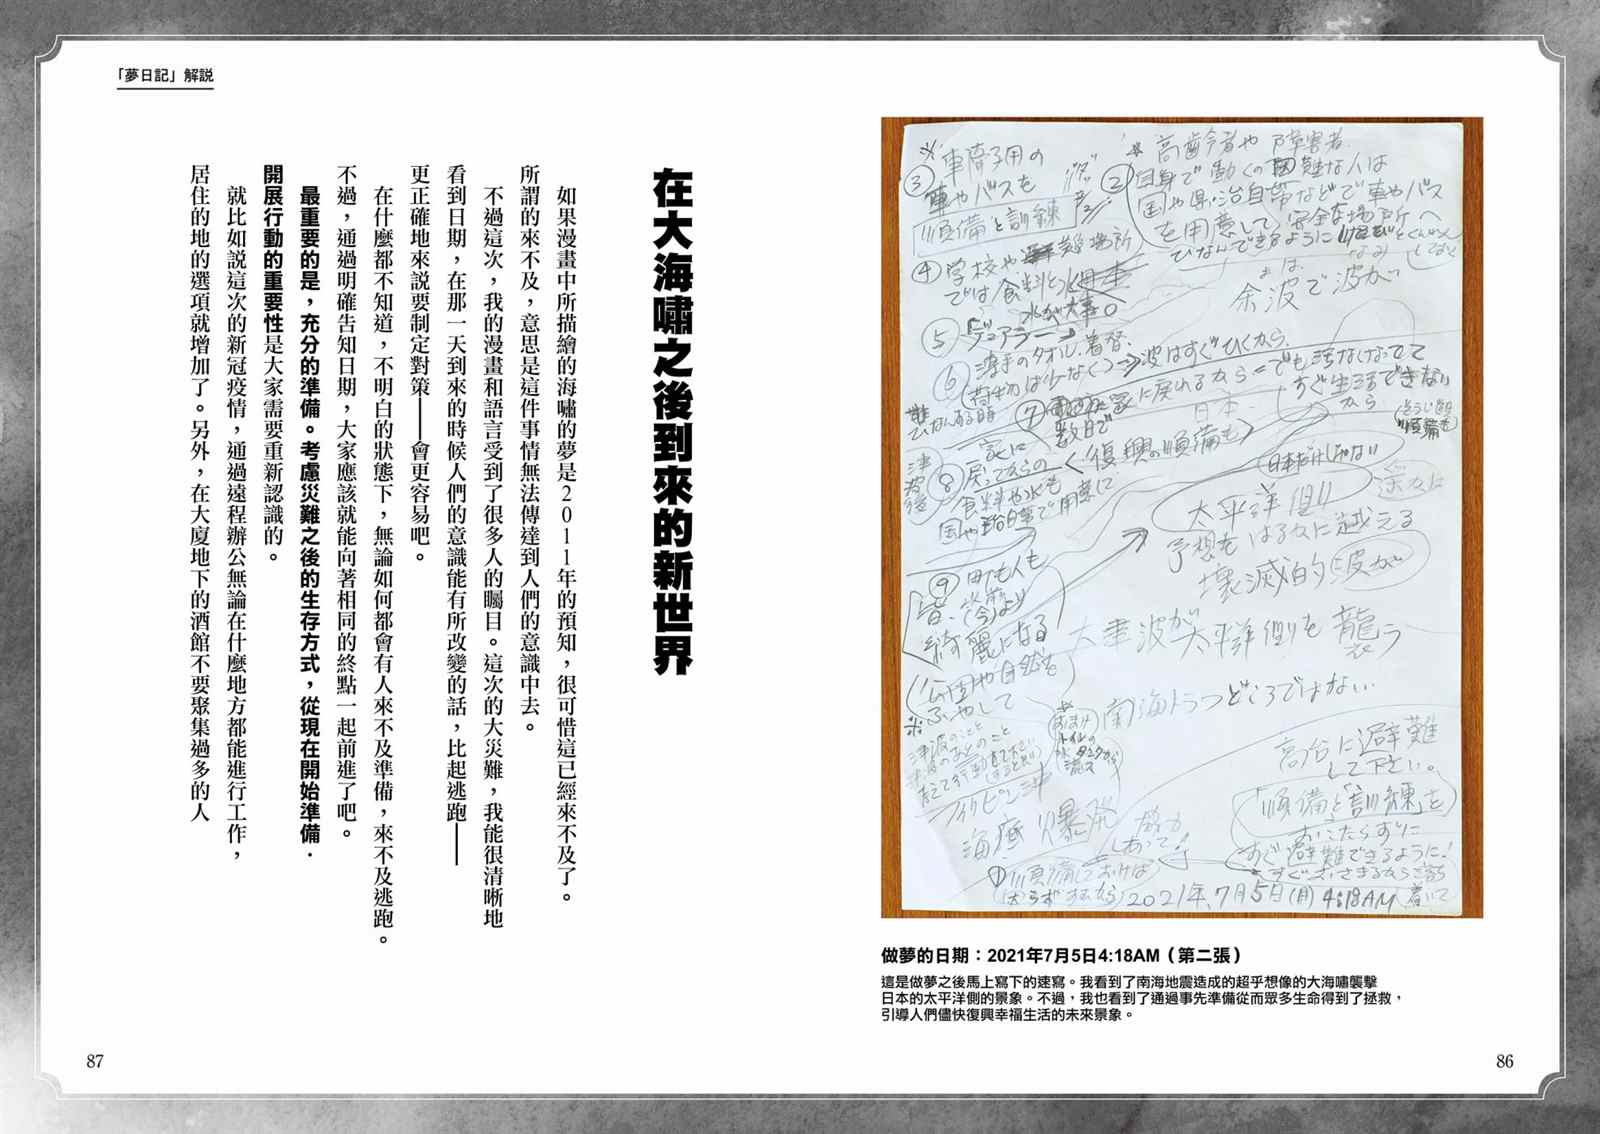 ※高齢者や障害者
② 自身で働くの困難な人は
国や県・治自帯などで車やバス
を用意して、安全な場所へ
ひなんできるように
※車椅子用の
③ 車やバスを
順備と訓練
④ 学校や避難場所
では食料と
水が大事。
余波で波が
⑤ デュアラー
⑥ 薄手のタオル、着替
荷物は少なく⇒波はすぐひくから
すぐ生活できない
から
ひなんする時
⑦ 家に戻れるから
数日で
日本
復興の順備も
津波後
⑧ 家に
戻ってからの
食料や水も
国や治自帯で用意に
日本だけじゃない
太平洋側
予想をはるかに越える
壊滅的波が
⑨ 町も人も
皆、以前(今)より
綺麗になる
公園や自然を
ふやして
大津波が太平洋側を襲う
南海トラフどころではない
高台に避難
して下さい。
「順備と「訓練」を
おこたらずに
すぐ避難できるように!
フィリピン沖
海底爆発
① 順備しておけば
2021年、7月5日(月)4:18AM
做夢的日期：2021年7月5日4:18AM（第二張）
這是做夢之後馬上寫下的速寫。我看到了南海地震造成的超乎想像的大海嘯襲擊
日本的太平洋側的景象。不過，我也看到了通過事先準備從而眾多生命得到了拯救，
引導人們儘快復興幸福生活的未來景象。
86
「夢日記」解説
在大海嘯之後到來的新世界
如果漫畫中所描繪的海嘯的夢是2011年的預知，很可惜這已經來不及了。
所謂的來不及，意思是這件事情無法傳達到人們的意識中去。
不過這次，我的漫畫和語言受到了很多人的矚目。這次的大災難，我能很清晰地
看到日期，在那一天到來的時候人們的意識能有所改變的話，比起逃跑——
更正確地來說要制定對策——會更容易吧。
在什麼都不知道，不明白的狀態下，無論如何都會有人來不及準備，來不及逃跑。
不過，通過明確告知日期，大家應該就能向著相同的終點一起前進了吧。
最重要的是，充分的準備。考慮災難之後的生存方式，從現在開始準備．
開展行動的重要性是大家需要重新認識的。
就比如說這次的新冠疫情，通過遠程辦公無論在什麼地方都能進行工作，
居住的地的選項就增加了。另外，在大廈地下的酒館不要聚集過多的人
87